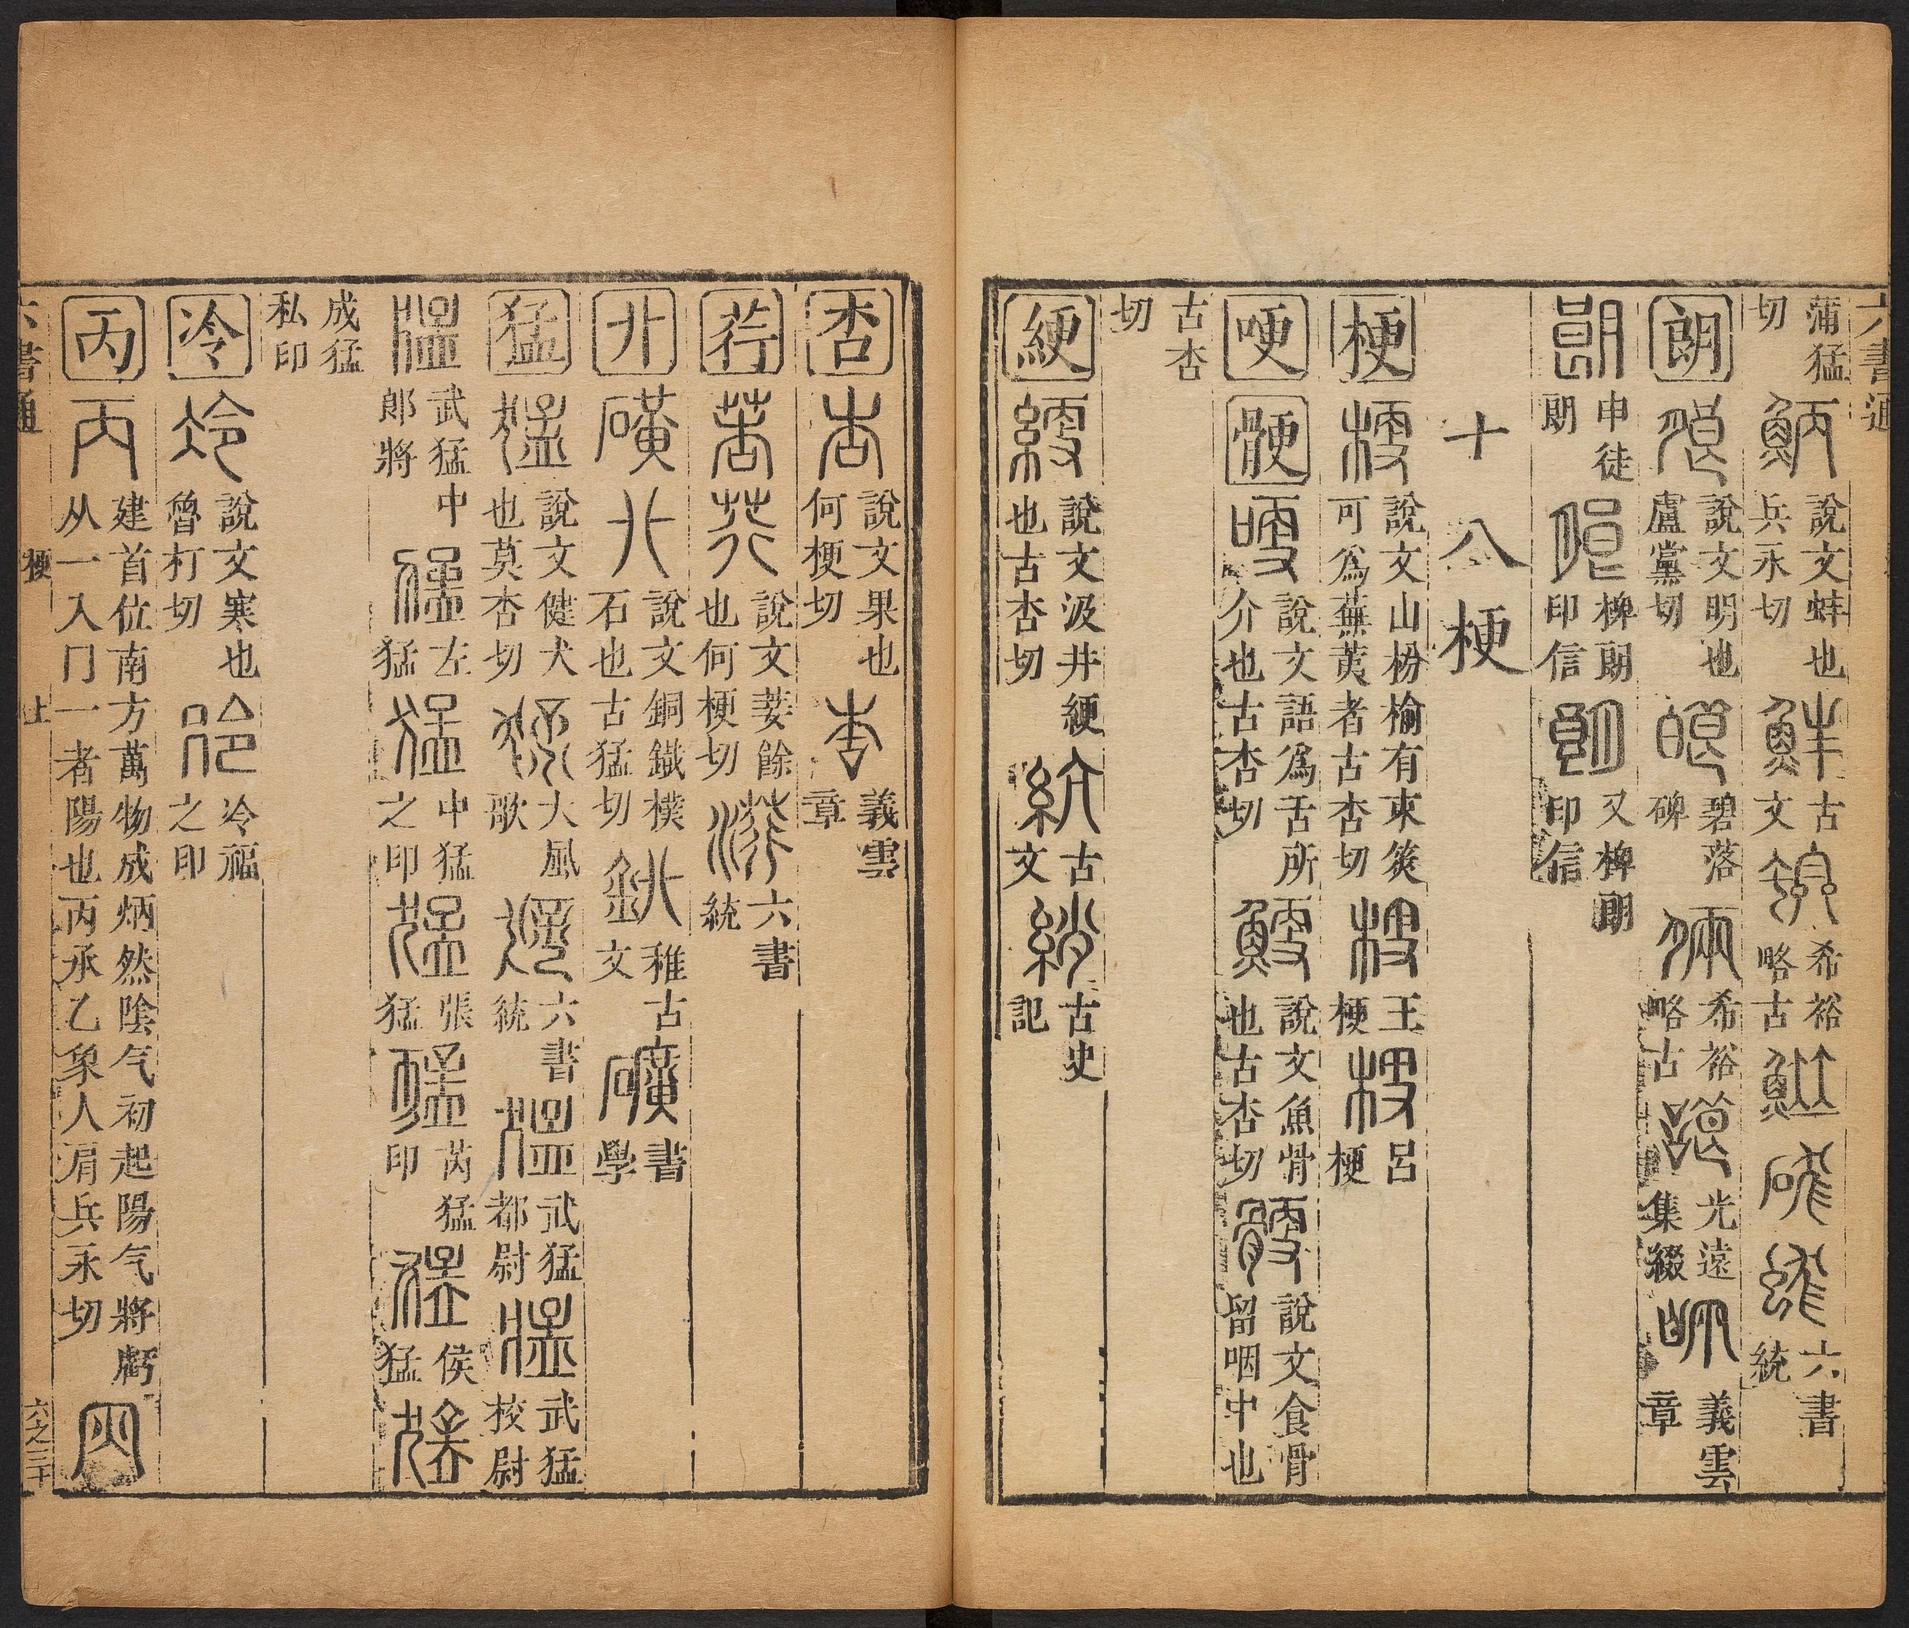 六書通
蒲猛切 說文蚌也兵永切 古文 希裕略古 六書統
朗 說文明也盧黨切 碧落碑 希裕略古 光遠集綴 義雲章
申徒朗 椑朗印信 又椑朗印信
十八梗
梗 說文山枌榆有朿莢可為蕪荑者古杏切 王梗 呂梗
哽 骾 說文語為舌所介也古杏切 說文魚骨也古杏切 說文食骨留咽中也
古杏切
綆 說文汲井綆也古杏切 古文 古史記
杏 說文果也何梗切 義雲章
荇 說文菨餘也何梗切 六書統
卝 說文銅鐵樸石也古猛切 稚古文 書學
猛 說文健犬也莫杏切 大風歌 六書統 武猛都尉 武猛校尉
武猛中郎將 左猛 中猛之印 張猛 芮猛印 侯猛
成猛私印
冷 說文寒也魯打切 冷福之印
丙 建首位南方萬物成炳然陰气初起陽气將虧从一入冂一者陽也丙承乙象人肩兵永切
六書通 梗 上 六之三十